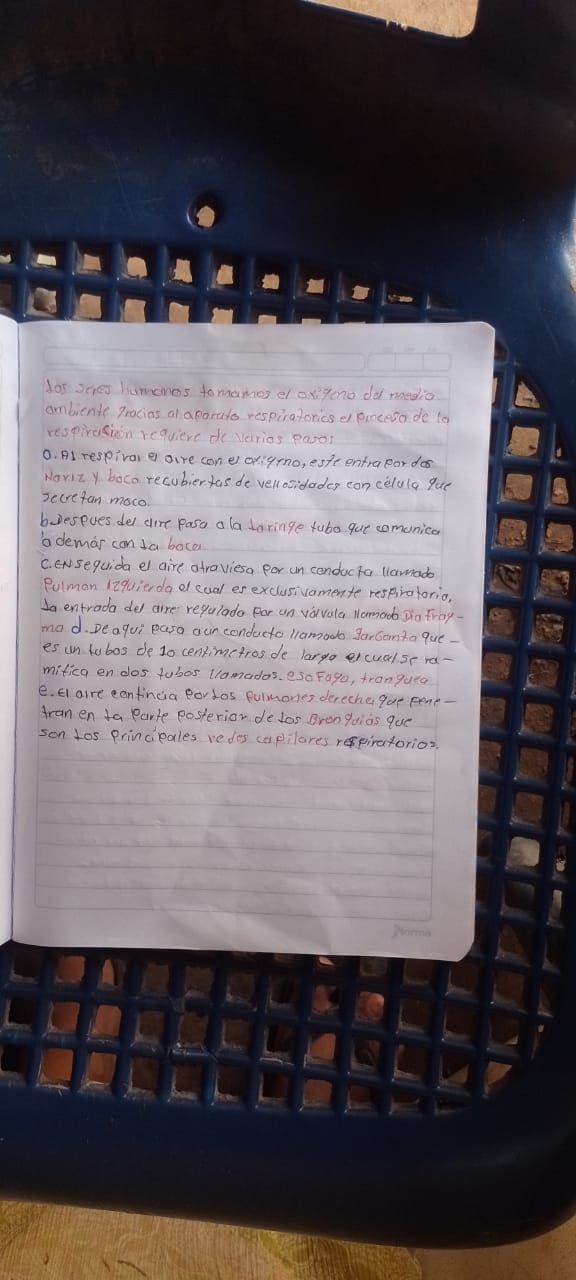 Los seres humanos tomamos el oxigeno del medio
ambiente gracias al aparato respiratorios el proceso de la
respiración requiere de varios pasos
a. Al respirar el aire con el oxigeno, este entra por dos
Nariz y boca recubiertas de vellosidades con célula que
secretan moco.
b. Despues del aire pasa a la laringe tubo que comunica
ademár con la boca
C. Enseguida el aire atraviesa por un conducto llamado
Pulmon Izquierda el cual es exclusivamente respiratorio,
la entrada del aire regulada por un válvula llamada Diafrag-
ma d. De aqui pasa a un conducto llamado Garganta que-
es un tubos de 10 centimetros de largo el cual se ra-
mifica en dos tubos llamados. esofago, tranquea
e. El aire contincia por los Pulmones derecha, que pene-
tran en la parte posterior de los Bronquias que
son los principales redes capilares respiratorios.
Norma